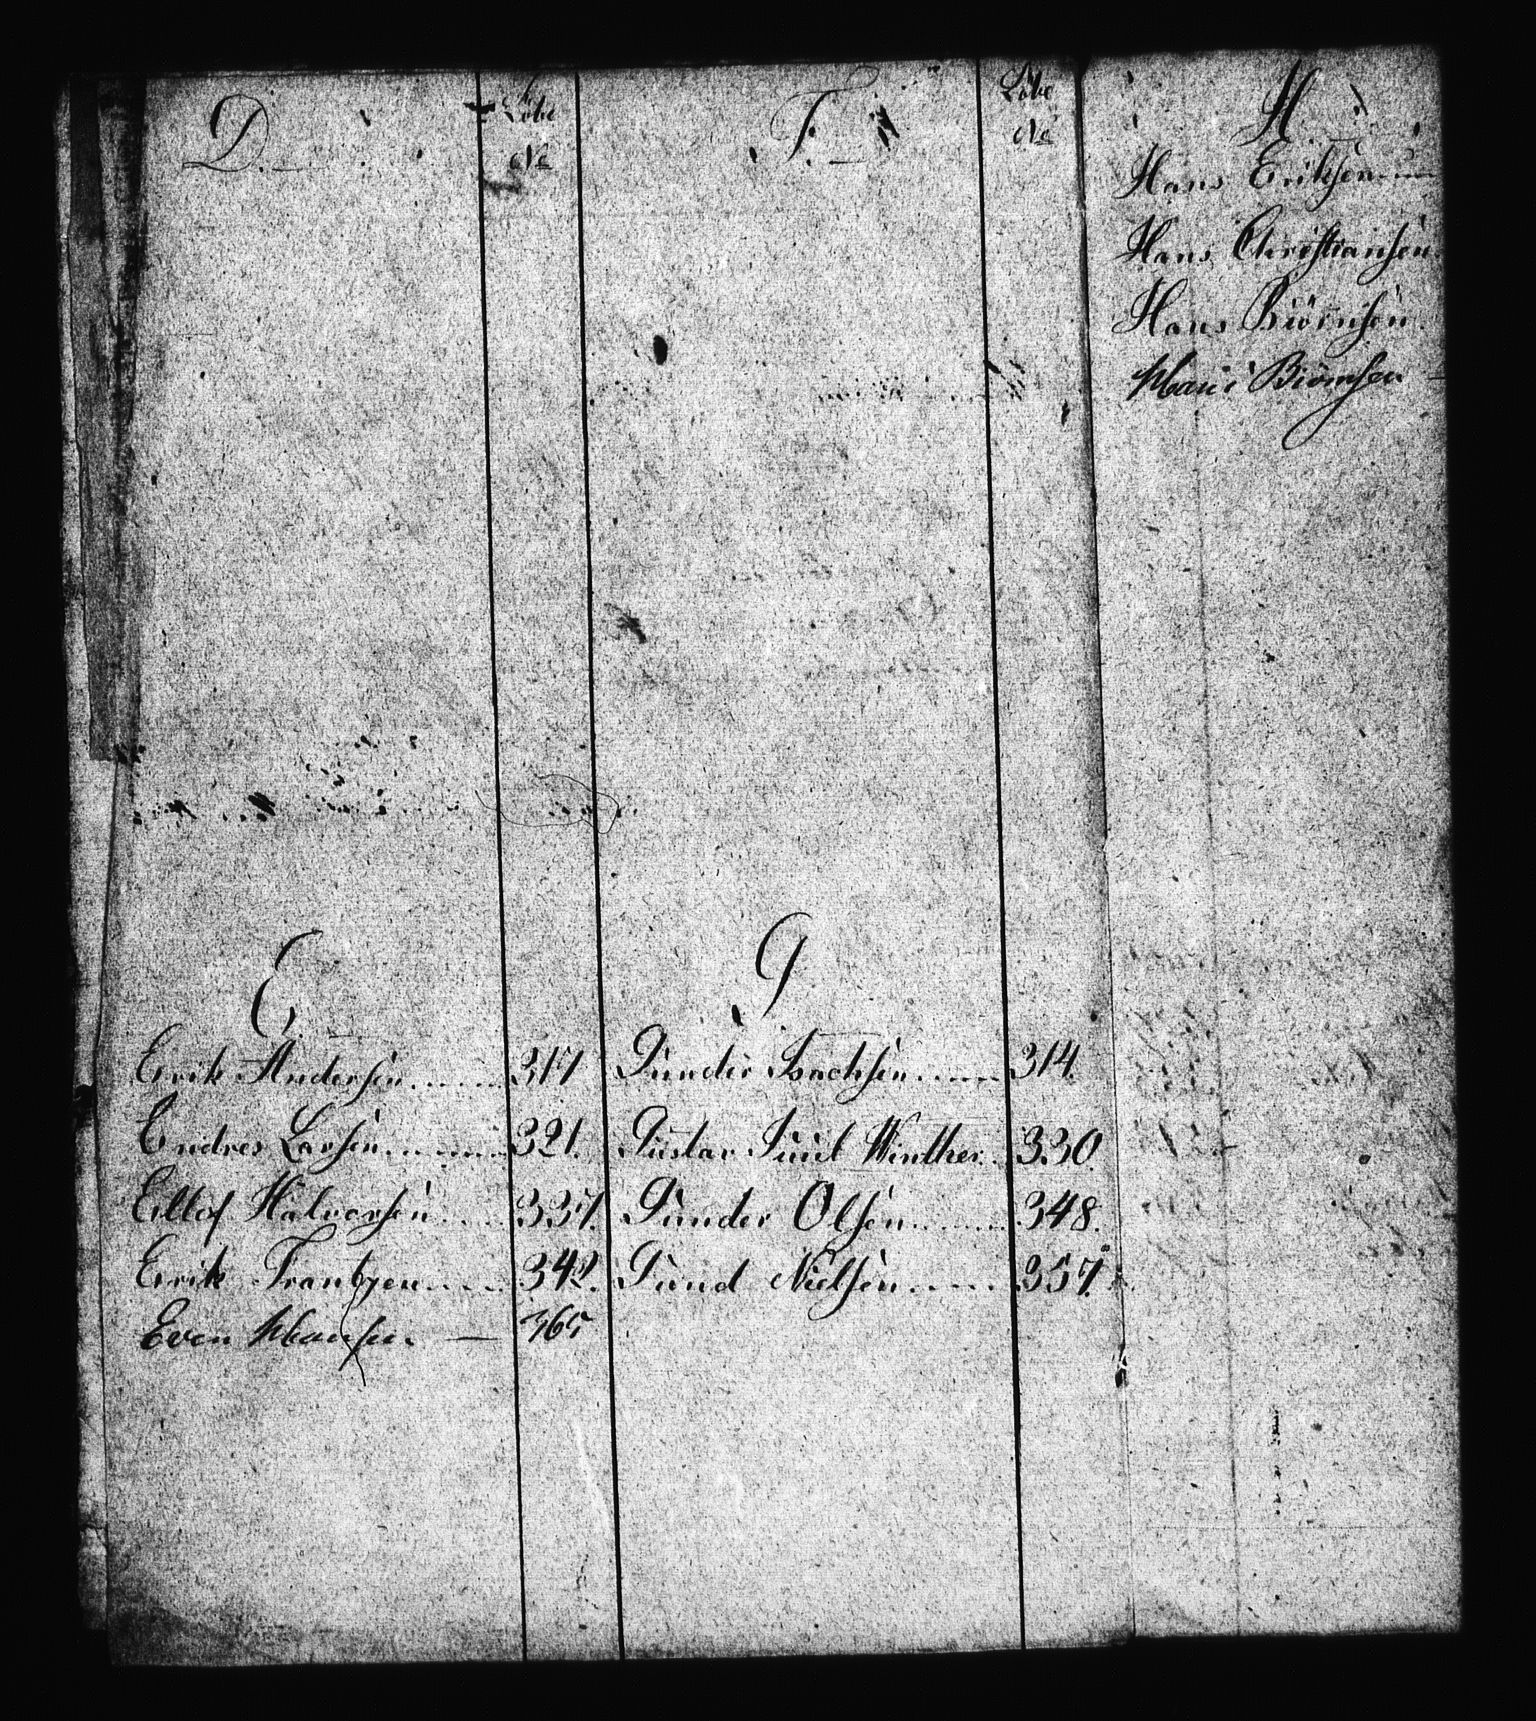 D.
Löbe
No
E.
Erik Andersen 317
Endres Larsen 321.
Ellof Halvorsen 337.
Erik Frantzen 342.
Even Hansen 365
F.
Löbe
No
G
Gunder Isachsen 314.
Gustav Juul Winther 330.
Gunder Olsen 348.
Gund Nielsen 357.
H.
Hans Eriksen
Hans Christiansen
Hans Biörnsen
Biörnsen